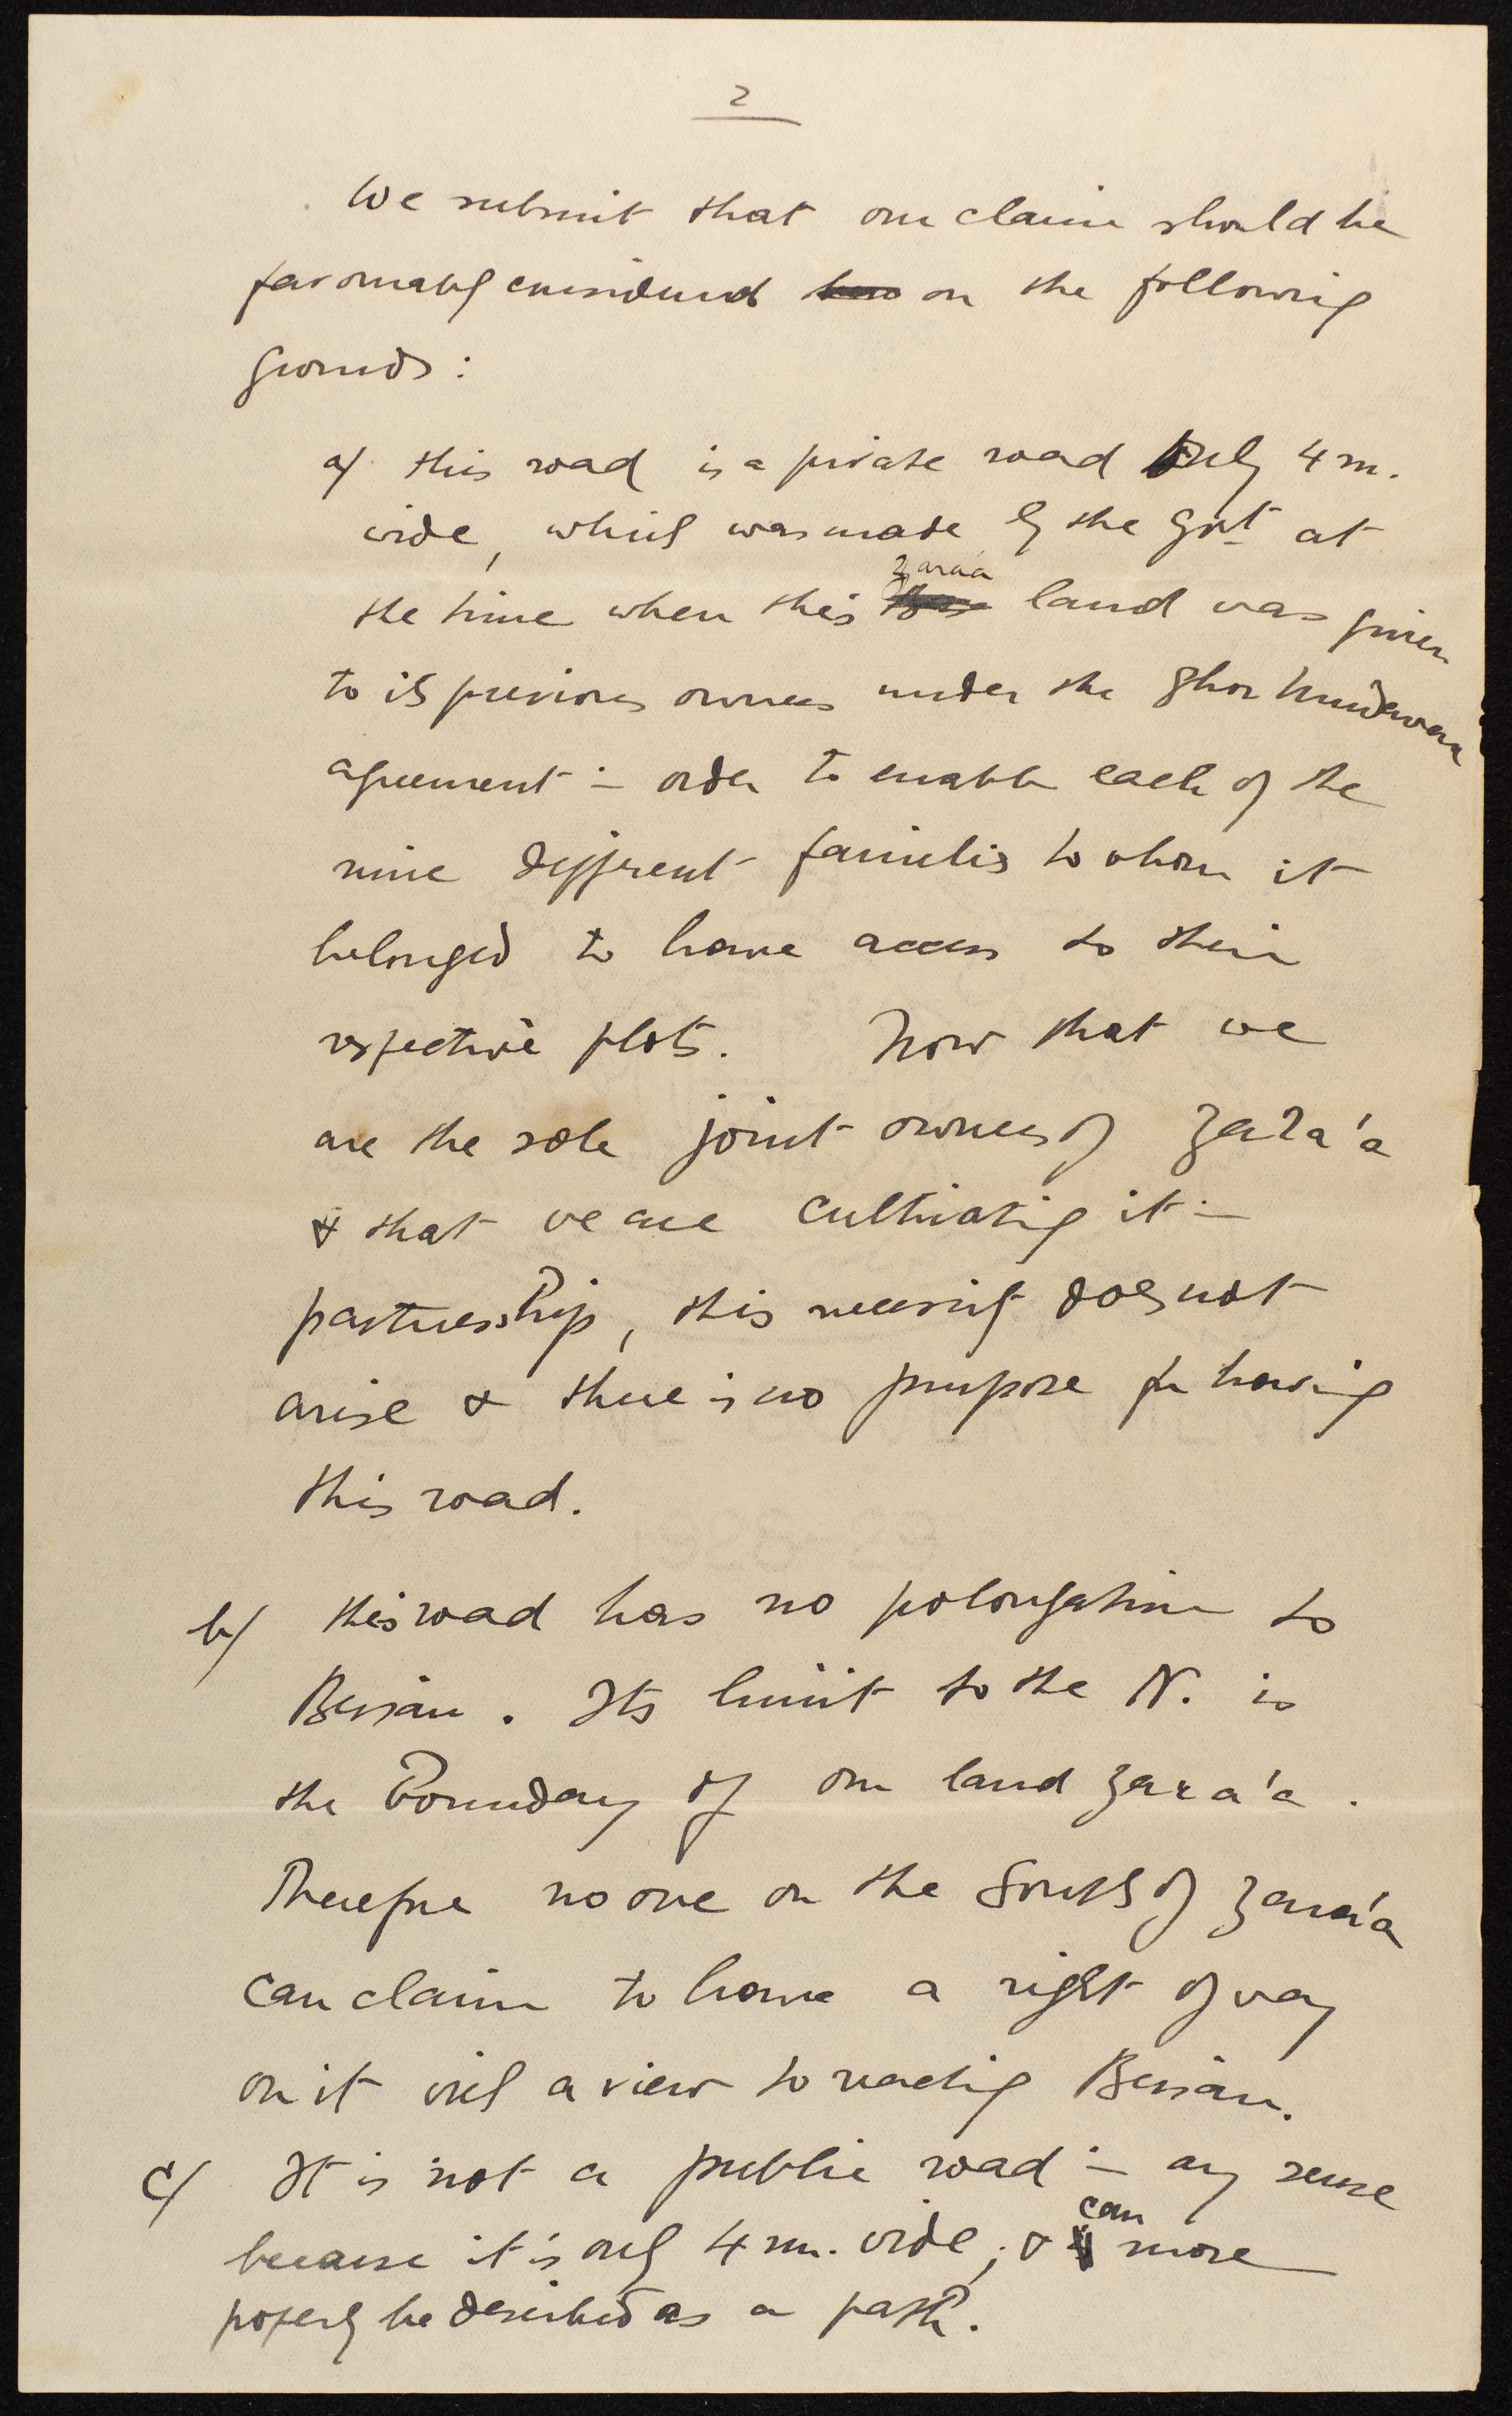 2
We submit that our claim should be
favourably considered on the following
grounds:
a/ this road is a private road only 4 m.
wide, which was made by the Govt at
Zaraa
the time when this land was given
to its previous owners under the Ghor Mudawara
agreement in order to enable each of the
nine different families to whom it
belonged to have access to their
respective plots. Now that we
are the sole joint owners of Zara'a
& that we are cultivating it in
partnership, this necessity does not
arise & there is no purpose for having
this road.
b/ this road has no prolongation to
Beisan. Its limit to the N. is
the Boundary of our land Zara'a.
Therefore no one on the South of Zara'a
can claim to have a right of way
on it with a view to reaching Beisan.
c/ It is not a public road in any sense
can
because it is only 4 m. wide, & more
properly be described as a path.